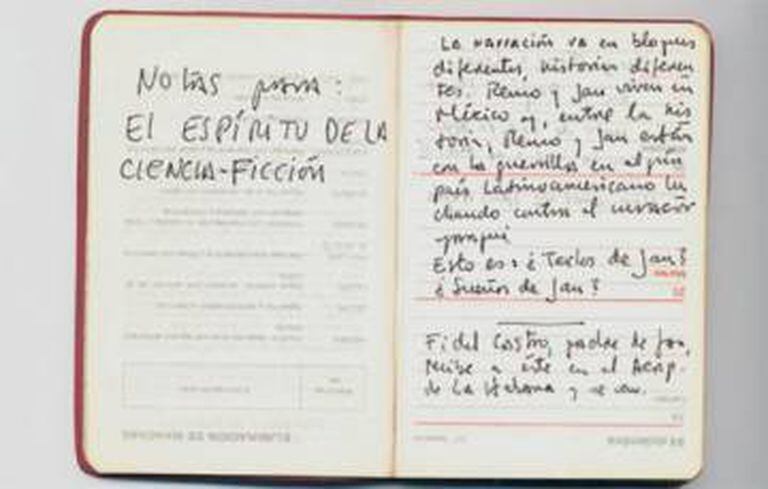 Notas para:
El ESPÍRITU DE LA
CIENCIA-FICCIÓN
La narración va en bloques
diferentes, historias diferen
tes. Remo y Jan viven en
México y, entre la his
toria, Remo y Jan están
con la guerrilla en algún
país Latinoamericano lu
chando contra el invasor
yanqui
Esto es: ¿Textos de Jan?
¿Sueños de Jan?
Fidel Castro, padre de Jan,
recibe a éste en el Aerop.
de La Habana y se van.